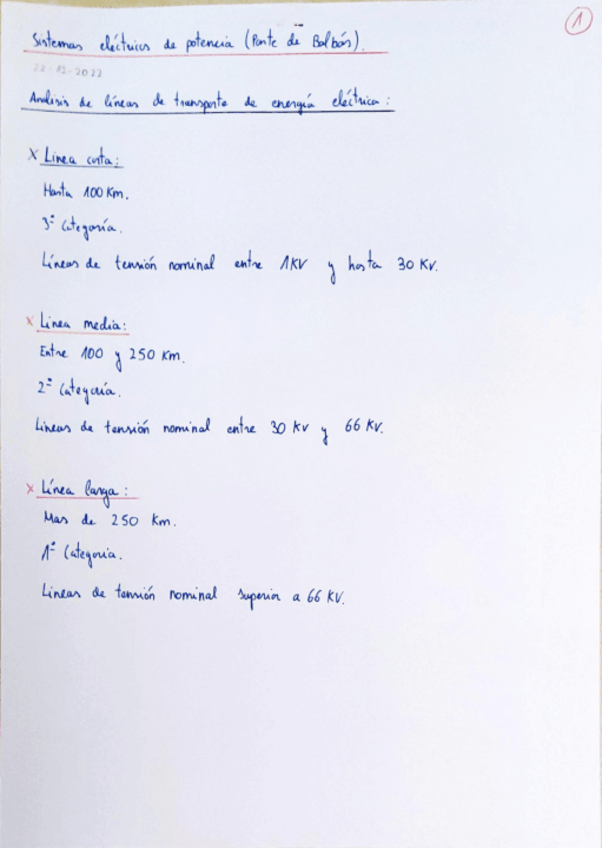 1
Sistemas eléctricos de potencia (Parte de Balbás).
22-12-2022
Análisis de líneas de transporte de energía eléctrica:
x Línea corta:
Hasta 100 Km.
3ª Categoría.
Líneas de tensión nominal entre 1KV y hasta 30 KV.
x Linea media:
Entre 100 y 250 Km.
2ª Categoría.
Lineas de tensión nominal entre 30 KV y 66 KV.
x Línea larga:
Mas de 250 Km.
1ª Categoria.
Lineas de tensión nominal superior a 66 KV.